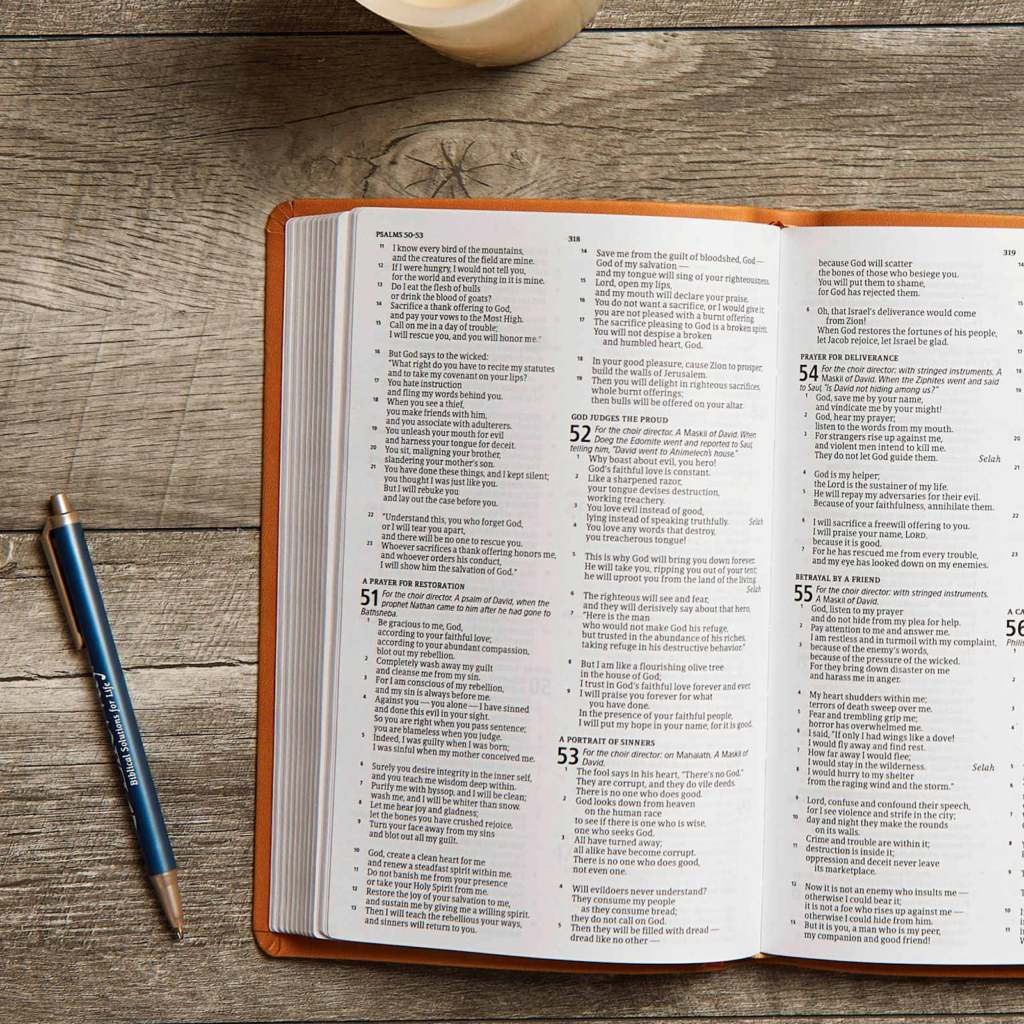 PSALMS 50-53
11 I know every bird of the mountains,
and the creatures of the field are mine.
12 If I were hungry, I would not tell you,
for the world and everything in it is mine.
13 Do I eat the flesh of bulls
or drink the blood of goats?
14 Sacrifice a thank offering to God,
and pay your vows to the Most High.
15 Call on me in a day of trouble;
I will rescue you, and you will honor me."
16 But God says to the wicked:
"What right do you have to recite my statutes
and to take my covenant on your lips?
17 You hate instruction
and fling my words behind you.
18 When you see a thief,
you make friends with him,
and you associate with adulterers.
19 You unleash your mouth for evil
and harness your tongue for deceit.
20 You sit, maligning your brother,
slandering your mother's son.
21 You have done these things, and I kept silent;
you thought I was just like you.
But I will rebuke you
and lay out the case before you.
22 "Understand this, you who forget God,
or I will tear you apart,
and there will be no one to rescue you.
23 Whoever sacrifices a thank offering honors me,
and whoever orders his conduct,
I will show him the salvation of God."
A PRAYER FOR RESTORATION
51 For the choir director. A psalm of David, when the
prophet Nathan came to him after he had gone to
Bathsheba.
1 Be gracious to me, God,
according to your faithful love;
according to your abundant compassion,
blot out my rebellion.
2 Completely wash away my guilt
and cleanse me from my sin.
3 For I am conscious of my rebellion,
and my sin is always before me.
4 Against you — you alone — I have sinned
and done this evil in your sight.
So you are right when you pass sentence;
you are blameless when you judge.
5 Indeed, I was guilty when I was born;
I was sinful when my mother conceived me.
6 Surely you desire integrity in the inner self,
and you teach me wisdom deep within.
7 Purify me with hyssop, and I will be clean;
wash me, and I will be whiter than snow.
8 Let me hear joy and gladness;
let the bones you have crushed rejoice.
9 Turn your face away from my sins
and blot out all my guilt.
10 God, create a clean heart for me
and renew a steadfast spirit within me.
11 Do not banish me from your presence
or take your Holy Spirit from me.
12 Restore the joy of your salvation to me,
and sustain me by giving me a willing spirit.
13 Then I will teach the rebellious your ways,
and sinners will return to you.
318
14 Save me from the guilt of bloodshed, God —
God of my salvation —
and my tongue will sing of your righteousness.
15 Lord, open my lips,
and my mouth will declare your praise.
16 You do not want a sacrifice, or I would give it;
you are not pleased with a burnt offering.
17 The sacrifice pleasing to God is a broken spirit.
You will not despise a broken
and humbled heart, God.
18 In your good pleasure, cause Zion to prosper;
build the walls of Jerusalem.
19 Then you will delight in righteous sacrifices,
whole burnt offerings;
then bulls will be offered on your altar.
GOD JUDGES THE PROUD
52 For the choir director. A Maskil of David. When
Doeg the Edomite went and reported to Saul,
telling him, "David went to Ahimelech's house."
1 Why boast about evil, you hero!
God's faithful love is constant.
2 Like a sharpened razor,
your tongue devises destruction,
working treachery.
3 You love evil instead of good,
lying instead of speaking truthfully. Selah
4 You love any words that destroy,
you treacherous tongue!
5 This is why God will bring you down forever.
He will take you, ripping you out of your tent;
he will uproot you from the land of the living. Selah
6 The righteous will see and fear,
and they will derisively say about that hero,
7 "Here is the man
who would not make God his refuge,
but trusted in the abundance of his riches,
taking refuge in his destructive behavior."
8 But I am like a flourishing olive tree
in the house of God;
I trust in God's faithful love forever and ever.
9 I will praise you forever for what
you have done.
In the presence of your faithful people,
I will put my hope in your name, for it is good.
A PORTRAIT OF SINNERS
53 For the choir director: on Mahalath. A Maskil of
David.
1 The fool says in his heart, "There's no God."
They are corrupt, and they do vile deeds.
There is no one who does good.
2 God looks down from heaven
on the human race
to see if there is one who is wise,
one who seeks God.
3 All have turned away;
all alike have become corrupt.
There is no one who does good,
not even one.
4 Will evildoers never understand?
They consume my people
as they consume bread;
they do not call on God.
5 Then they will be filled with dread —
dread like no other —
319
because God will scatter
the bones of those who besiege you.
You will put them to shame,
for God has rejected them.
6 Oh, that Israel's deliverance would come
from Zion!
When God restores the fortunes of his people,
let Jacob rejoice, let Israel be glad.
PRAYER FOR DELIVERANCE
54 For the choir director: with stringed instruments. A
Maskil of David. When the Ziphites went and said
to Saul, "Is David not hiding among us?"
1 God, save me by your name,
and vindicate me by your might!
2 God, hear my prayer;
listen to the words from my mouth.
3 For strangers rise up against me,
and violent men intend to kill me.
They do not let God guide them. Selah
4 God is my helper;
the Lord is the sustainer of my life.
5 He will repay my adversaries for their evil.
Because of your faithfulness, annihilate them.
6 I will sacrifice a freewill offering to you.
I will praise your name, LORD,
because it is good.
7 For he has rescued me from every trouble,
and my eye has looked down on my enemies.
BETRAYAL BY A FRIEND
55 For the choir director: with stringed instruments.
A Maskil of David.
1 God, listen to my prayer
and do not hide from my plea for help.
2 Pay attention to me and answer me.
I am restless and in turmoil with my complaint,
3 because of the enemy's words,
because of the pressure of the wicked.
For they bring down disaster on me
and harass me in anger.
4 My heart shudders within me;
terrors of death sweep over me.
5 Fear and trembling grip me;
horror has overwhelmed me.
6 I said, "If only I had wings like a dove!
I would fly away and find rest.
7 How far away I would flee;
I would stay in the wilderness. Selah
8 I would hurry to my shelter
from the raging wind and the storm."
9 Lord, confuse and confound their speech,
for I see violence and strife in the city;
10 day and night they make the rounds
on its walls.
Crime and trouble are within it;
11 destruction is inside it;
oppression and deceit never leave
its marketplace.
12 Now it is not an enemy who insults me —
otherwise I could bear it;
it is not a foe who rises up against me —
otherwise I could hide from him.
13 But it is you, a man who is my peer,
my companion and good friend!
14
15
16
17
18
19
20
21
22
23
A CA
56
Philis
1
2
3
4
5
6
7
8
9
10
11
Biblical Solutions for Life